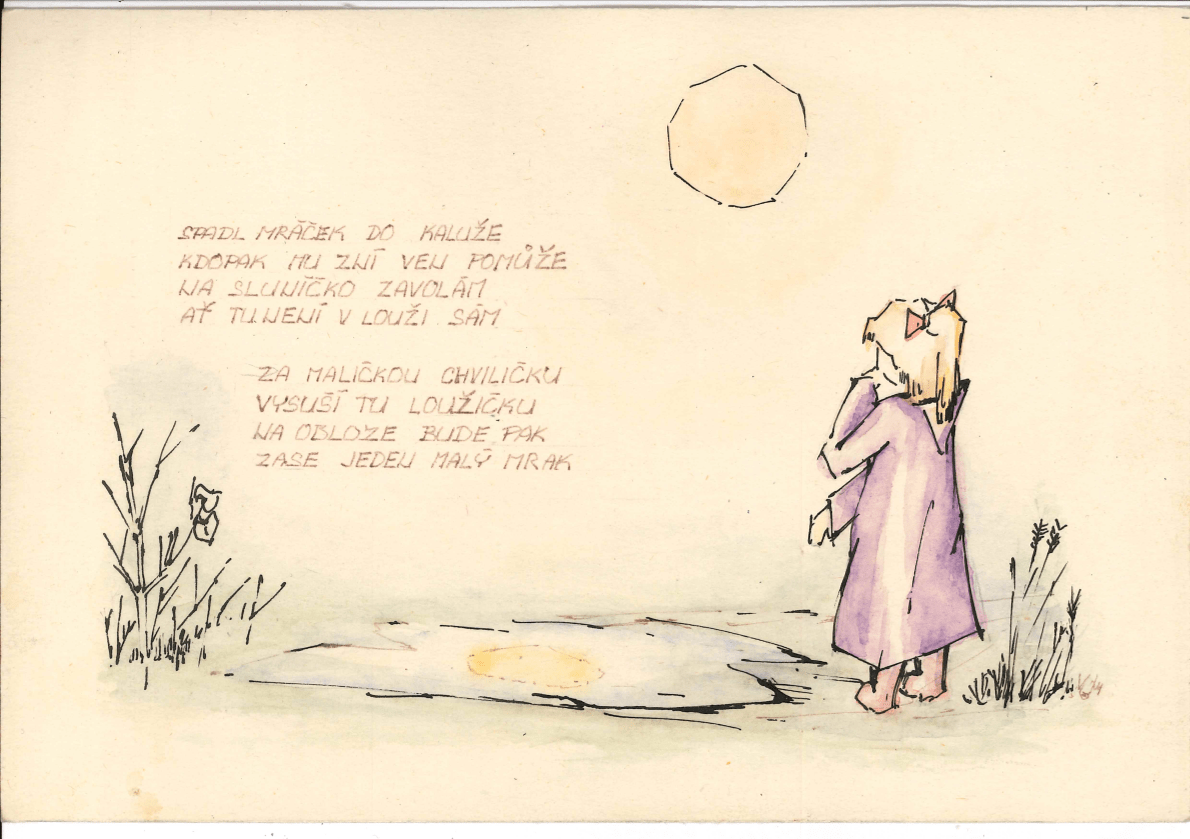 SPADL MRÁČEK DO KALUŽE
KDOPAK MU ZNÍ VEN POMŮŽE
NA SLUNÍČKO ZAVOLÁM
AŤ TU NENÍ V LOUŽI SÁM
ZA MALIČKOU CHVILIČKU
VYSUŠÍ TU LOUŽIČKU
NA OBLOZE BUDE PAK
ZASE JEDEN MALÝ MRAK